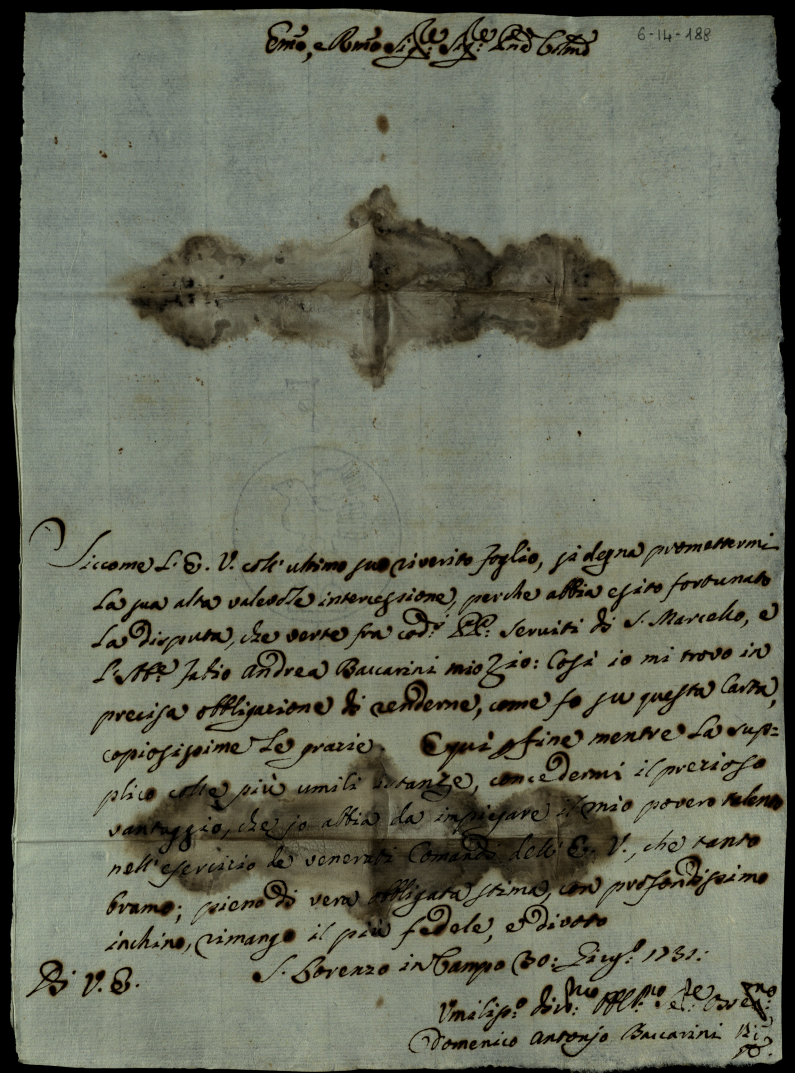 6-14-188
Em̃o, e Rm̃o Sig:re Sig:re Pne Colmo
Siccome L'E. V. coll'ultimo suo riverito foglio, si degna promettermi
la sua alta valevole intercessione, perche abbia esito fortunato
la disputa, che verte fra cod:i PP: Serviti di S. Marcello, e
L'Abb:e Fabio Andrea Baccarini mio Zio: Così io mi trovo in
precisa obbligazione di renderne, come fo su questa Carta,
copiosissime Le grazie. E qui p fine mentre La sup=
plico colle più umili istanze, concedermi il prezioso
vantaggio, che io abbia da impiegare il mio povero talento
nell'esercizio de venerati Comandi dell'E. V., che tanto
bramo; pieno di vera obbligata stima, con profondissimo
inchino, rimango il più fedele, e divoto
S. Lorenzo in Campo 30: Giug:o 1731:
Di V. E.
Umiliss:o divo:mo obbl:mo
Domenico Antonio Baccarini